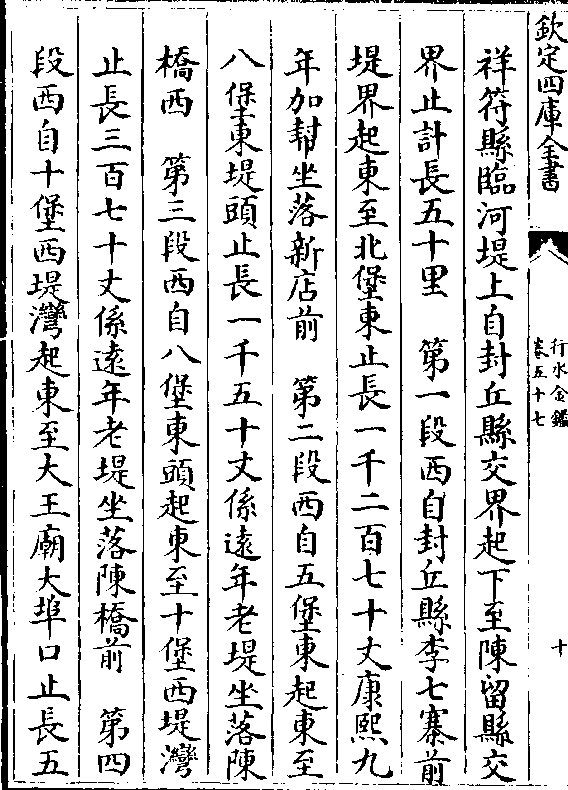 欽定四庫全書
行水金鑑
卷五十七
十
祥符縣臨河堤上自封丘縣交界起下至陳留縣交
界止計長五十里　第一段西自封丘縣李七寨前
堤界起東至北堡東止長一千二百七十丈康熙九
年加幇坐落新店前　第二段西自五堡東起東至
八堡東堤頭止長一千五十丈係遠年老堤坐落陳
橋西　第三段西自八堡東頭起東至十堡西堤灣
止長三百七十丈係遠年老堤坐落陳橋前　第四
段西自十堡西堤灣起東至大王廟大埠口止長五